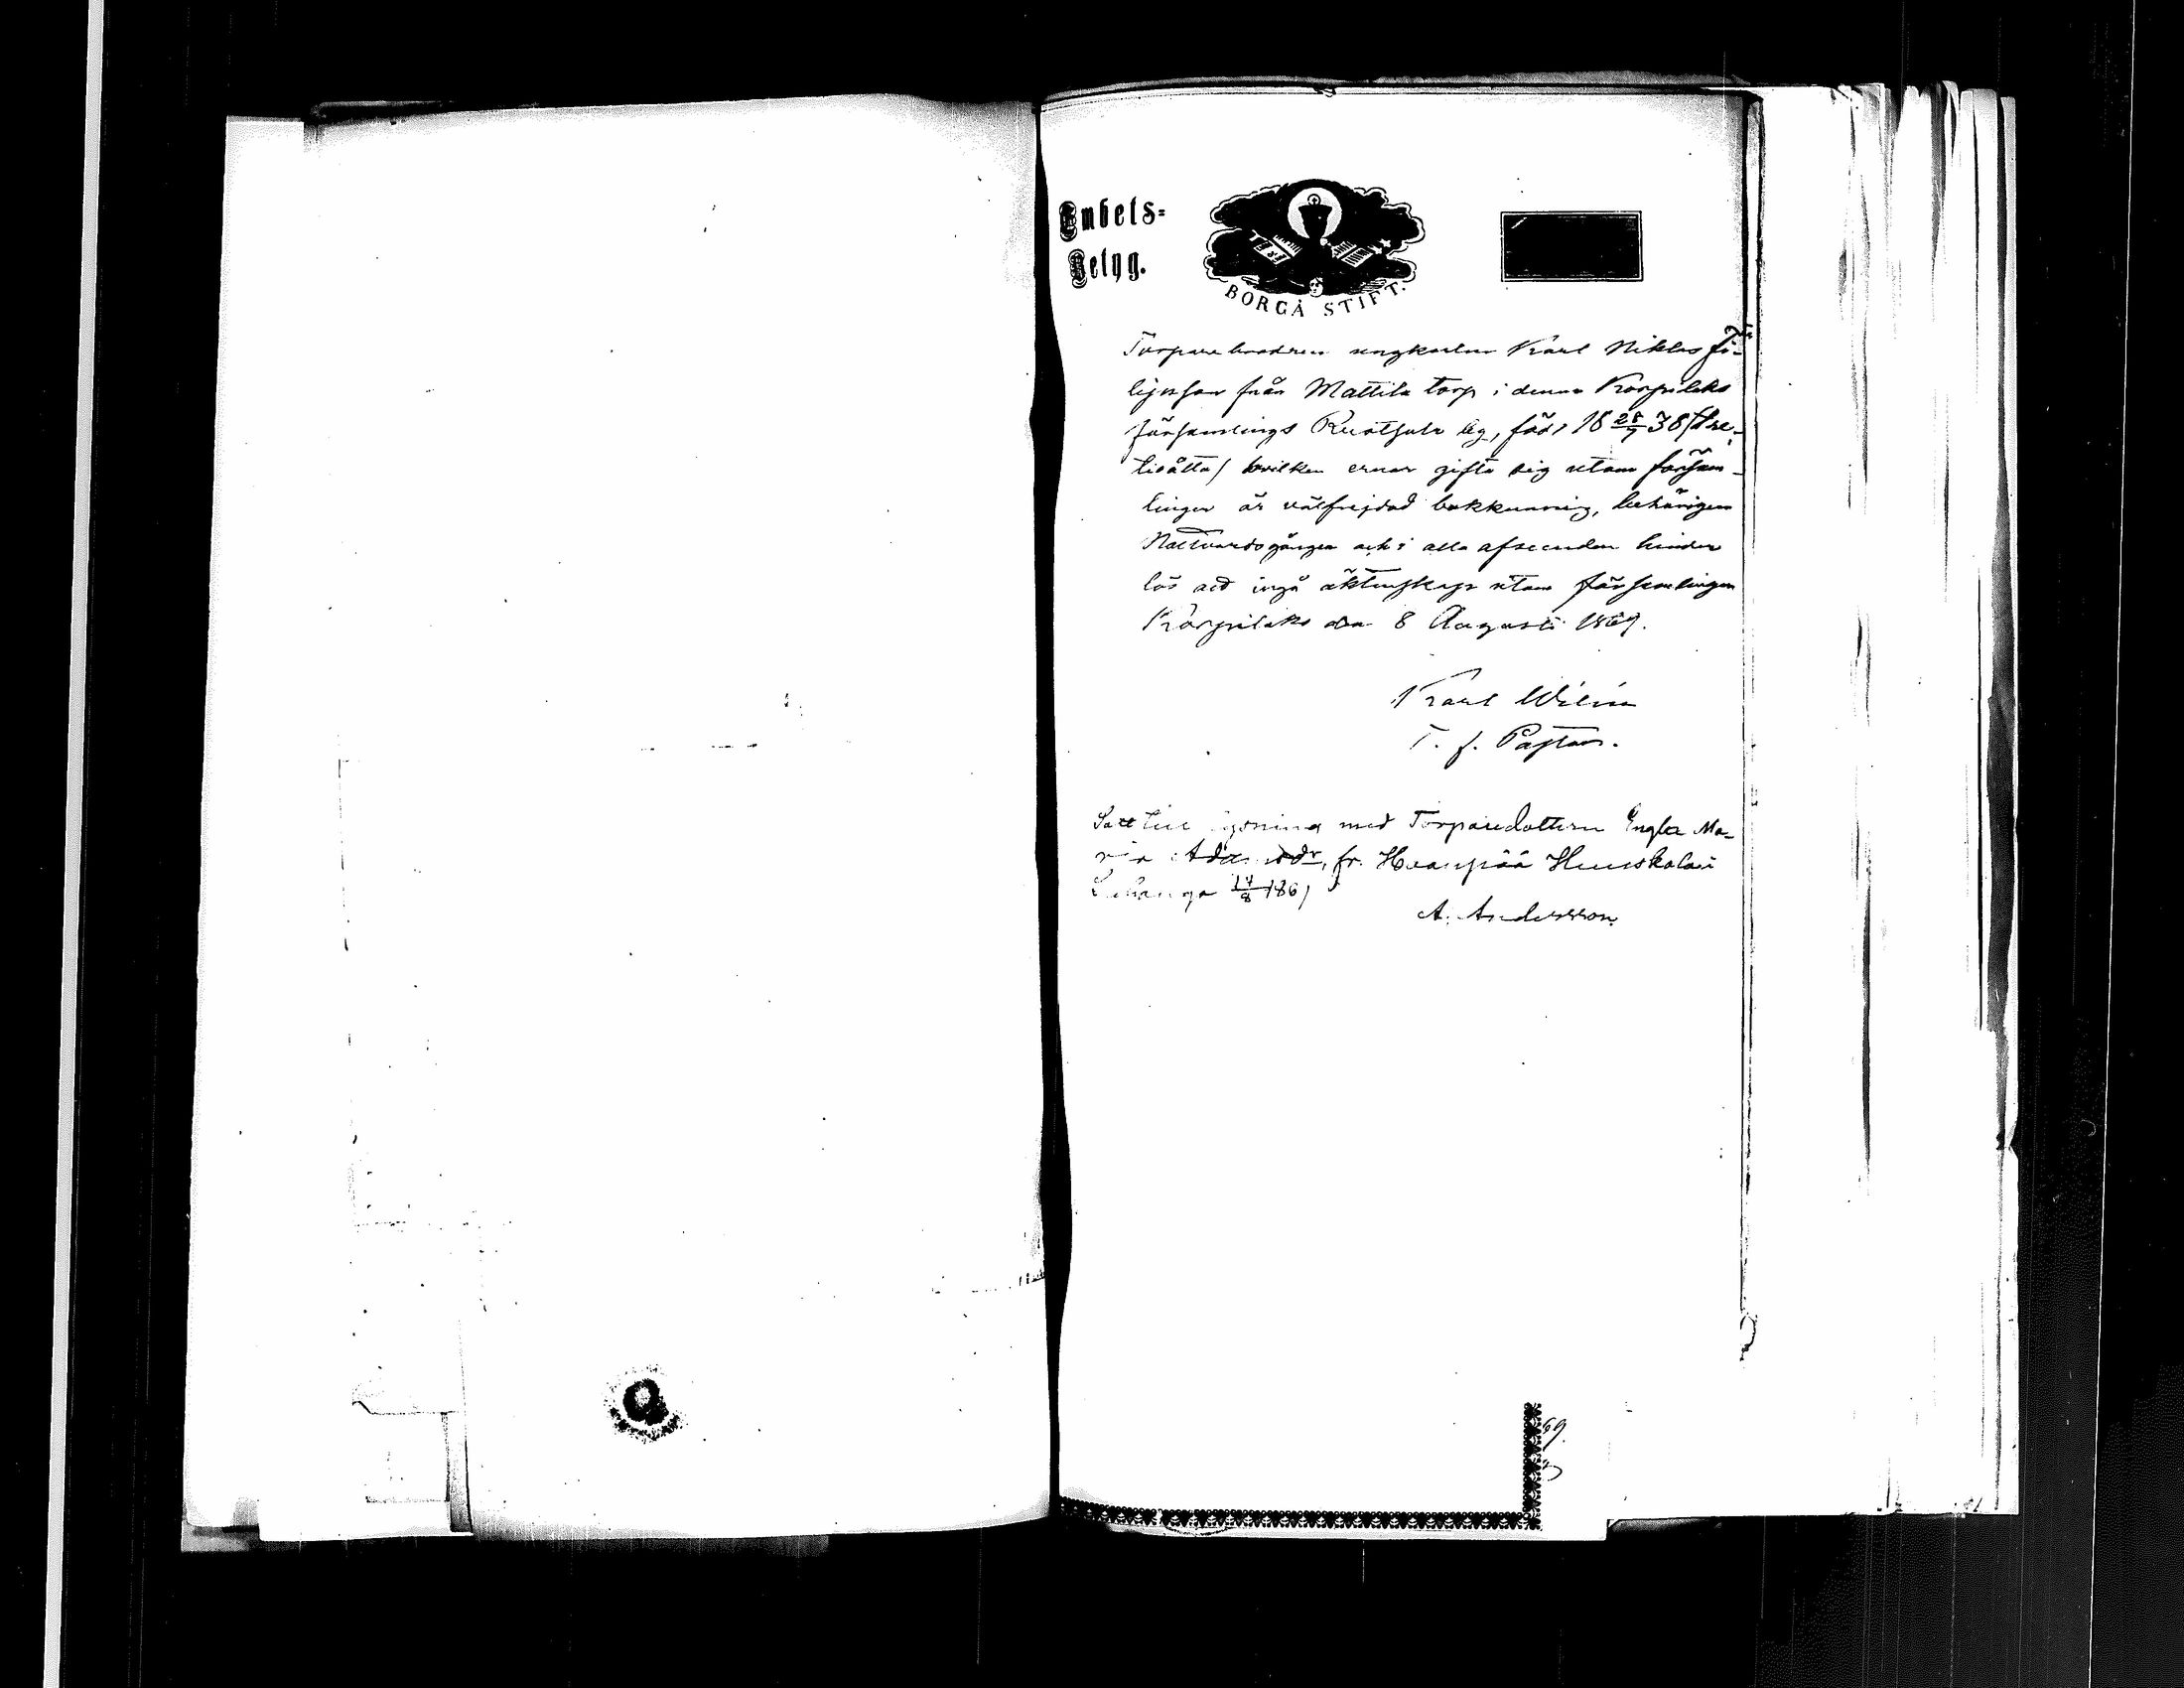 Embets=
Betyg.
BORGÅ STIFT.
Torpare brodren ungkarlen Karl Niklas Fi-
lipsson från Mattila torp i denna Korpilaks
församlings Ruatsalo by, född 18 28/7 38 /tre-
tioåtta/ hvilken ernar gifta sig utom försam-
lingen är välfrejdad bokkunnig, behörigen
Nattvardsgången och i alla afseenden hinder
lös att ingå äktenskap utom församlingen
Korpilaks den 8 Augusti 1869.
Karl Wilén
T. f. Pastor.
Satt till lysning med Torparedottern Engla Ma-
ria Adamsdr, fr. Haanpää Humskala i
Luhanga 8 186
A. Andersson.
69.